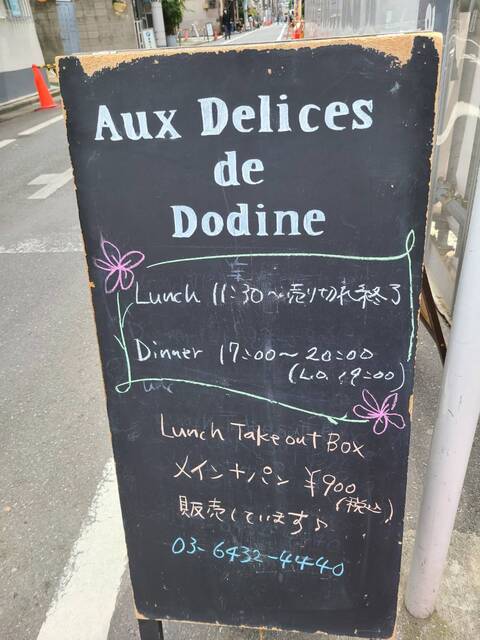 Aux Delices
de
Dodine
Lunch 11:30〜売り切れ終了
Dinner 17:00〜20:00
(L.O. 19:00)
Lunch Take out Box
メイン+パン ¥900
(税込)
販売しています♪
03-6432-4440